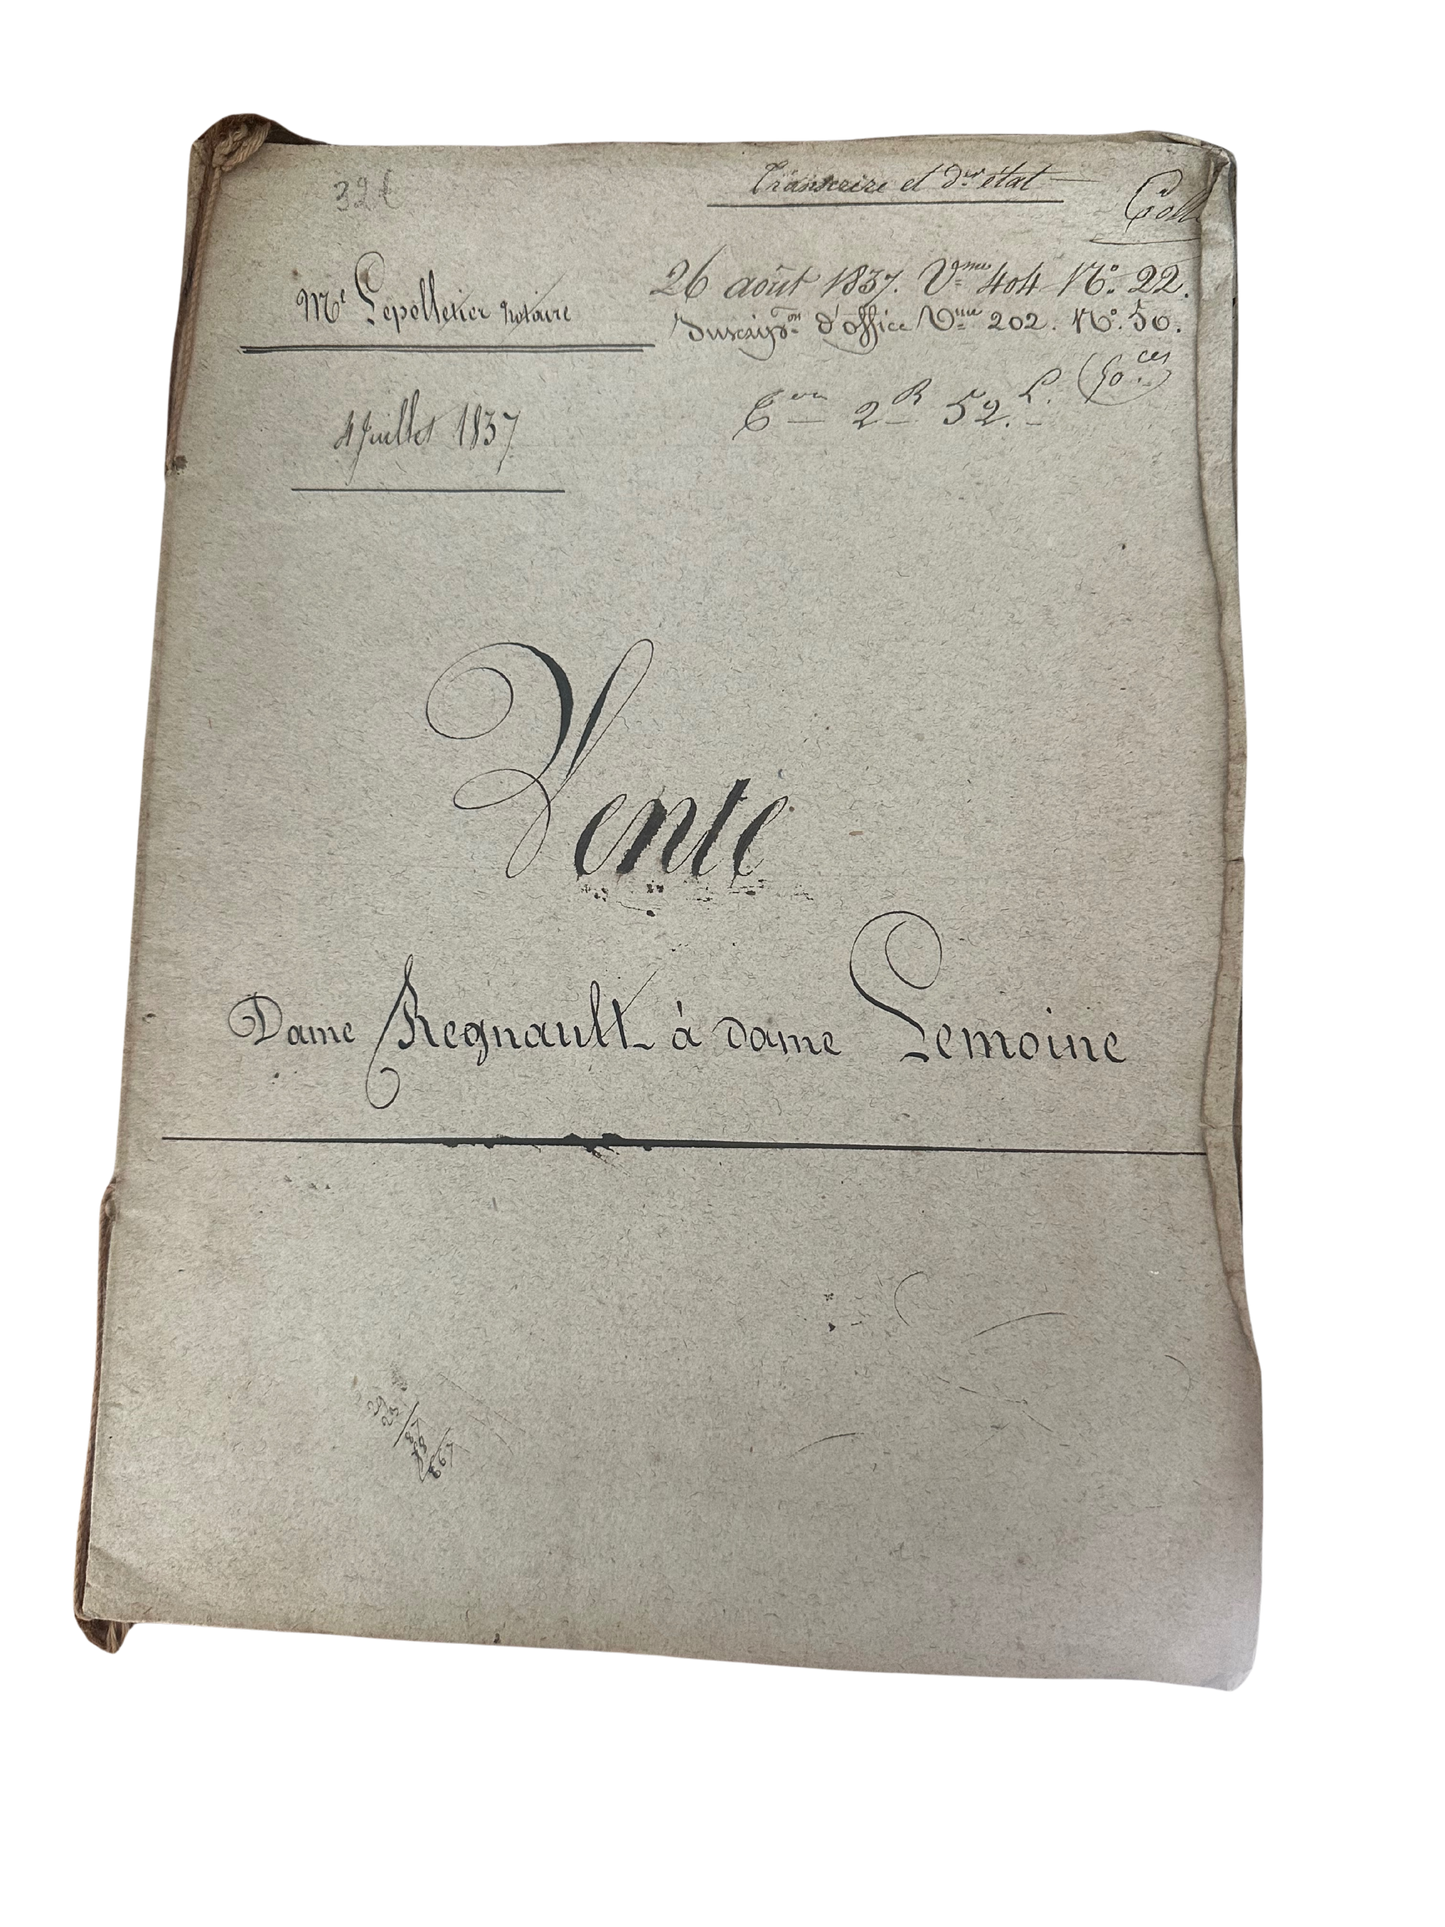 32€
Transcrire et der état
Me Lepelletier notaire
26 août 1837. Vme 404 No. 22.
Inscripon d'office Vme 202. No. 50.
4 Juillet 1837
2 R 52.
Vente
Dame Regnault à dame Lemoine